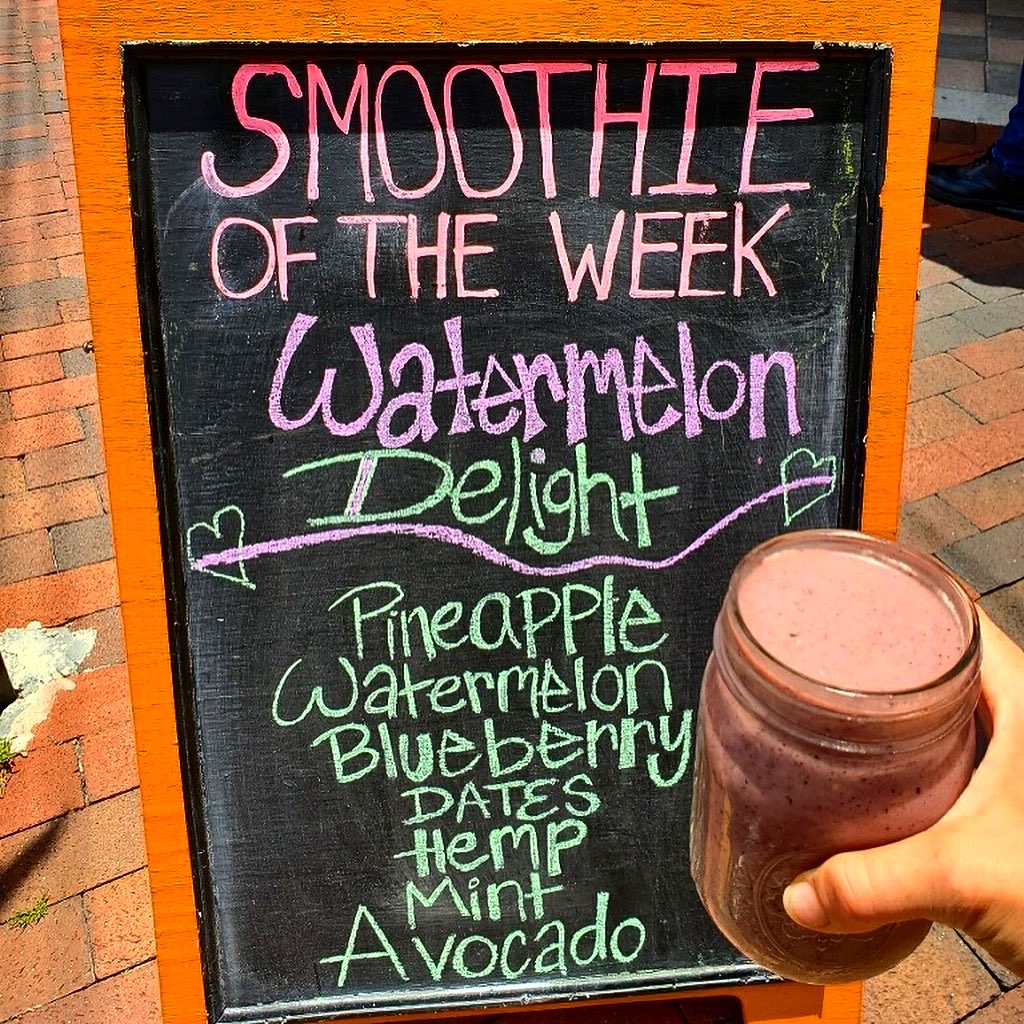 SMOOTHIE
OF THE WEEK
Watermelon
Delight
Pineapple
Watermelon
Blueberry
DATES
Hemp
Mint
Avocado